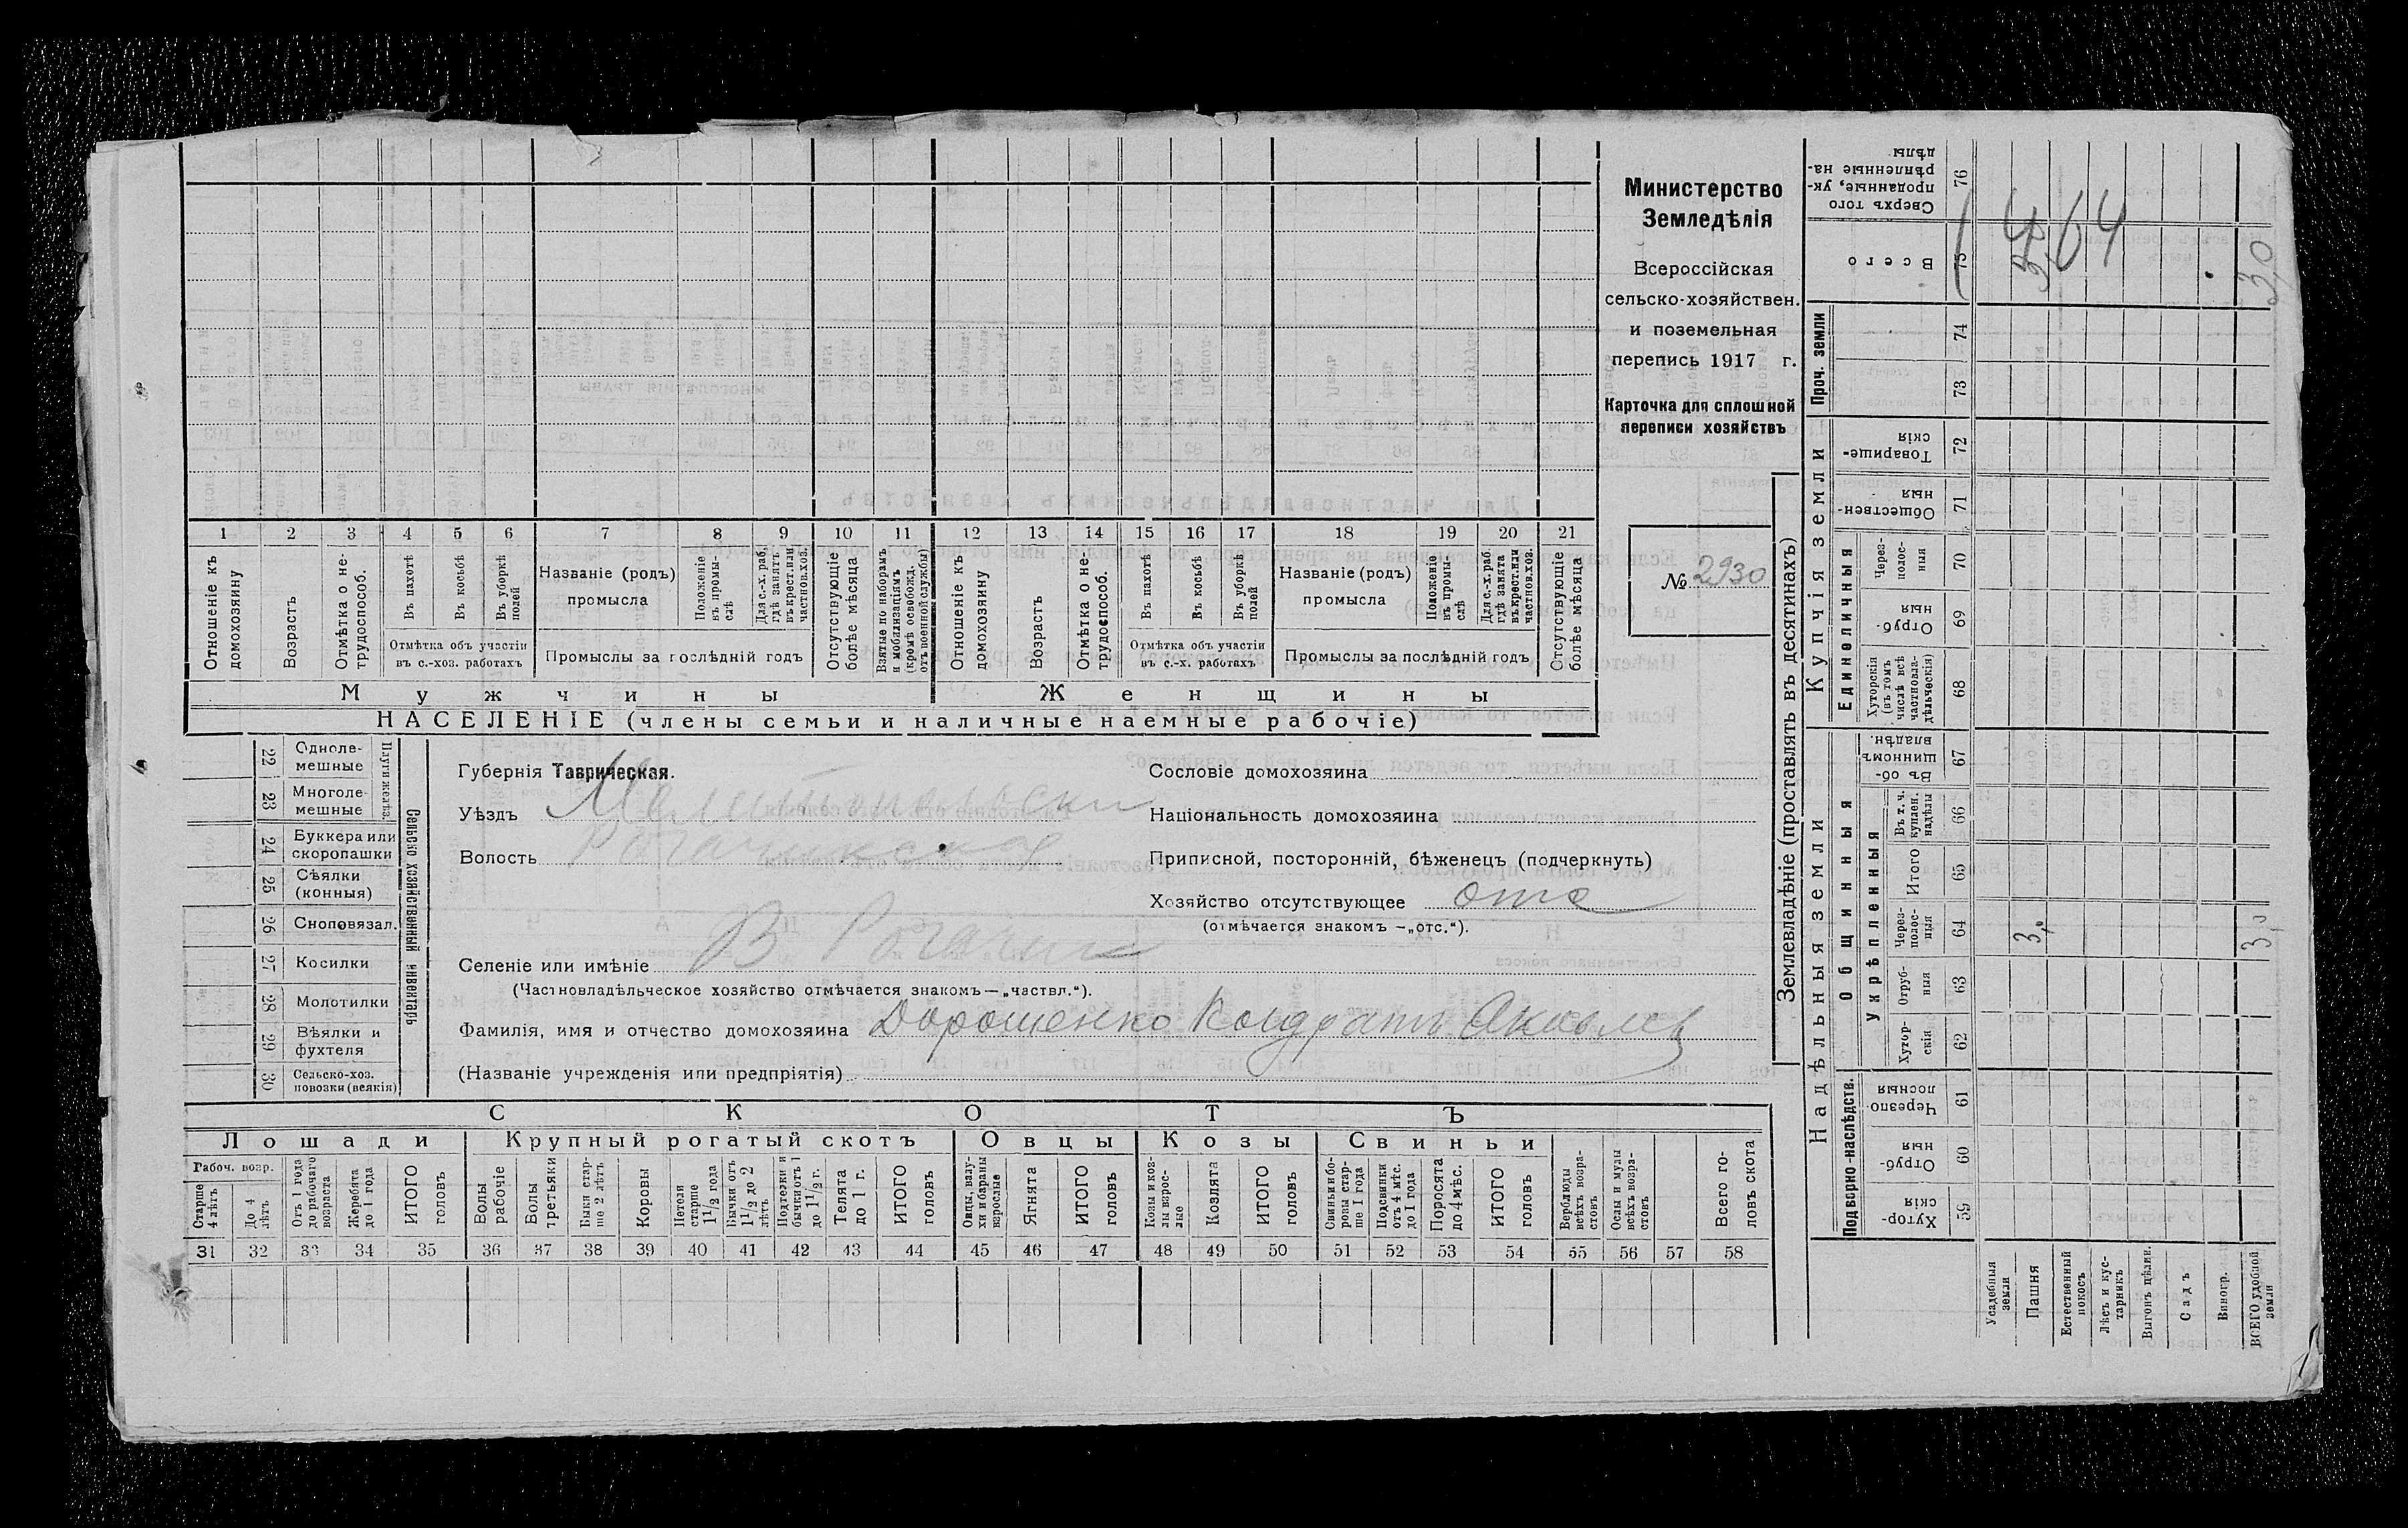 Министерство
Земледѣлія
Всероссійская
сельско-хозяйствен.
и поземельная
перепись 1917 г.
Карточка для сплошной
переписи хозяйствъ
№ 2930
1 2 3 4 5 6 7 8 9 10 11 12 13 14 15 16 17 18 19 20 21
Отношеніе къ домохозяину
Возрастъ
Отмѣтка о нетрудоспособ.
Въ пахотѣ
Въ косьбѣ
Въ уборкѣ полей
Отмѣтка объ участіи
въ с.-хоз. работахъ
Названіе (родъ)
промысла
Положеніе въ промыслѣ
Для с.-х. раб. гдѣ занятъ въ крест. или частнов. хоз.
Промыслы за послѣдній годъ
Отсутствующіе болѣе мѣсяца
Взятые по наборамъ и мобилизаціямъ (кромѣ освобожд. отъ военной службы)
Отношеніе къ домохозяину
Возрастъ
Отмѣтка о нетрудоспособ.
Въ пахотѣ
Въ косьбѣ
Въ уборкѣ полей
Отмѣтка объ участіи
въ с.-х. работахъ
Названіе (родъ)
промысла
Положеніе въ промыслѣ
Для с.-х. раб. гдѣ занята въ крест. или частнов. хоз.
Промыслы за послѣдній годъ
Отсутствующіе болѣе мѣсяца
Мужчины Женщины
НАСЕЛЕНІЕ (члены семьи и наличные наемные рабочіе)
22 Одноле-
мешные
23 Многоле-
мешные
Плуги желѣз.
24 Буккера или
скоропашки
25 Сѣялки
(конныя)
26 Сноповязал.
27 Косилки
28 Молотилки
29 Вѣялки и
фухтеля
30 Сельско-хоз.
повозки (всякія)
Сельско хозяйственный инвентарь
Губернія Таврическая.
Уѣздъ Мелитопольски
Волость Рогачикская
Селеніе или имѣніе В Рогачик
(Частновладѣльческое хозяйство отмѣчается знакомъ — „частвл.“).
Фамилія, имя и отчество домохозяина Дорошенко Кондратъ Яковлев
(Названіе учрежденія или предпріятія)
Сословіе домохозяина
Національность домохозяина
Приписной, посторонній, бѣженецъ (подчеркнуть)
Хозяйство отсутствующее отс
(отмѣчается знакомъ — „отс.“).
СКОТЪ
Лошади Крупный рогатый скотъ Овцы Козы Свиньи
Рабоч. возр.
Старше 4 лѣтъ
До 4 лѣтъ
Отъ 1 года до рабочаго возраста
Жеребята до 1 года
ИТОГО головъ
Волы рабочіе
Волы третьяки
Быки старше 2 лѣтъ
Коровы
Нетели старше 1 1/2 года
Бычки отъ 1 1/2 до 2 лѣтъ
Подтелки и бычки отъ 1 до 1 1/2 г.
Телята до 1 г.
ИТОГО головъ
Овцы, валухи и бараны взрослые
Ягнята
ИТОГО головъ
Козы и козлы взрослые
Козлята
ИТОГО головъ
Свиньи и боровы старше 1 года
Подсвинки отъ 4 мѣс. до 1 года
Поросята до 4 мѣс.
ИТОГО головъ
Верблюды всѣхъ возрастовъ
Ослы и мулы всѣхъ возрастовъ
Всего головъ скота
31 32 33 34 35 36 37 38 39 40 41 42 43 44 45 46 47 48 49 50 51 52 53 54 55 56 57 58
Землевладѣніе (проставлять въ десятинахъ)
Надѣльныя земли
Купчія земли
Проч. земли
Подворно-наслѣдств.
Общинныя
Укрѣпленныя
Единоличныя
Хуторскія 59
Отрубныя 60
Черезполосныя 61
Хуторскія 62
Отрубныя 63
Черезполосныя 64
Итого 65
Въ т. ч. купчен. надѣлы 66
Въ общинномъ владѣн. 67
Хуторскія (въ томъ числѣ всѣ частновладѣльческія) 68
Отрубныя 69
Черезполосныя 70
Общественныя 71
Товарищескія 72
73
74
Всего 75
Сверхъ того проданные, укрѣпленные надѣлы 76
Усадебныя земли
Пашня
Естественный покосъ
Лѣсъ и кустарникъ
Выгонъ цѣлин.
Садъ
Виногр.
ВСЕГО удобной земли
3,0
3,0
64
3,0